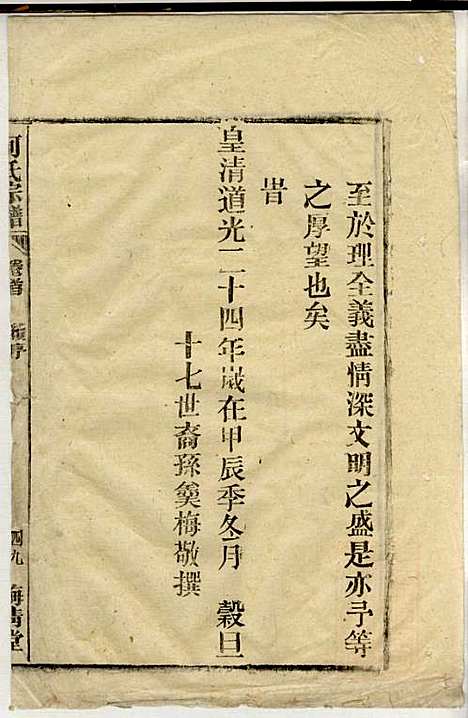 至於理全義盡情深文明之盛是亦予等
之厚望也矣
旹
皇清道光二十四年歲在甲辰季冬月 穀旦
十七世裔孫奠梅敬撰
何氏宗譜
卷首
續序
四九